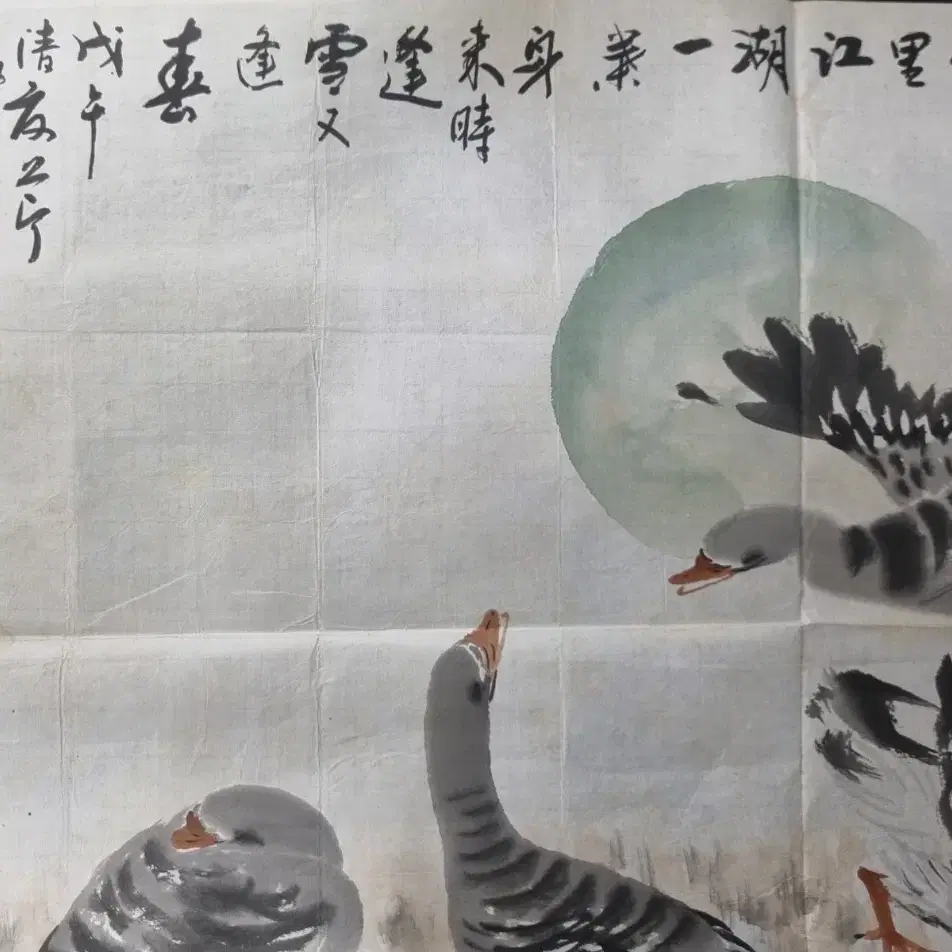 里江湖一葉身来時逢雪又逢春
戊午
清